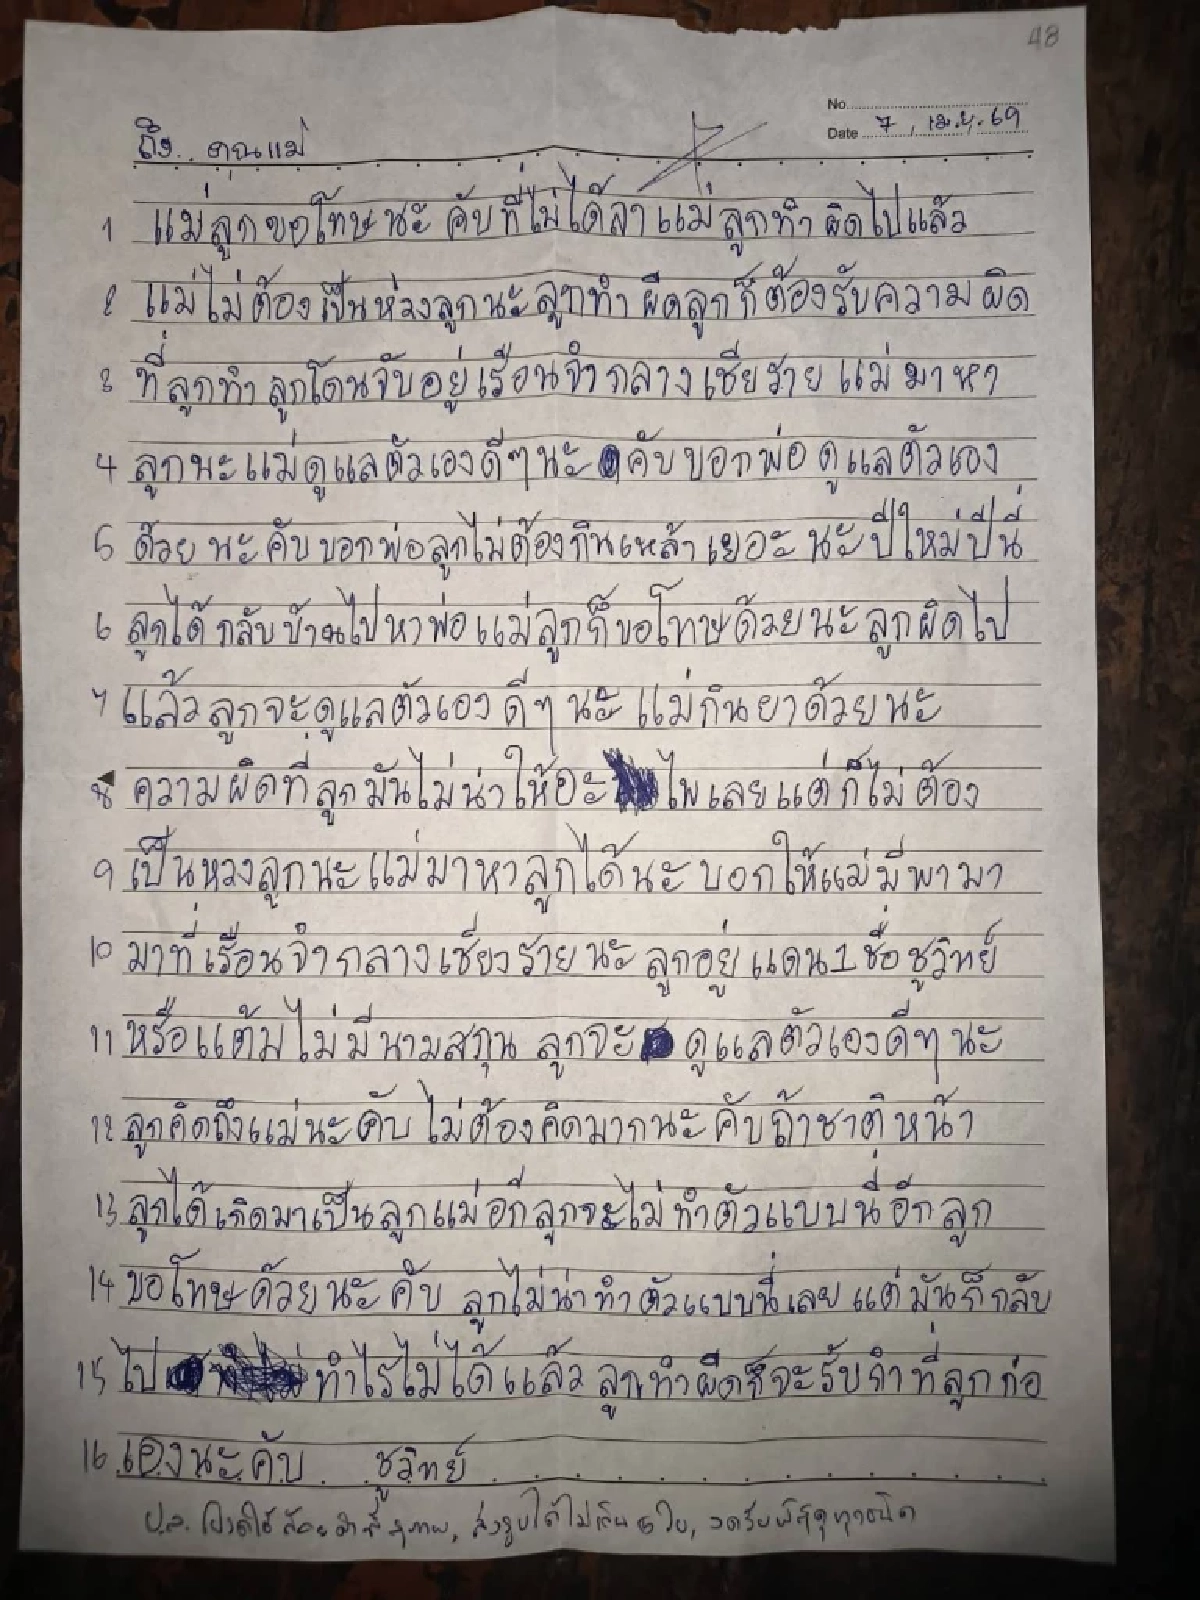 48
No
Date 7 / เม.ย. 69
ถึง.. คุณแม่
1 แม่ลูกขอโทษนะ คับที่ไม่ได้ลาแม่ลูกทำผิดไปแล้ว
2 แม่ไม่ต้องเป็นห่วงลูกนะลูกทำผีดลูกก็ต้องรับความผิด
3 ที่ลูกทำ ลูกโดนจับอยู่เรือนจำกลางเชียราย แม่มาหา
4 ลูกนะแม่ดูแลตัวเองดีๆนะ คับ บอกพ่อ ดูแลตัวเอง
5 ด้วย นะคับ บอกพ่อลูกไม่ต้องกินเหล้าเยอะนะปีใหม่ปีนี่
6 ลูกได้กลับบ้านไปหาพ่อแม่ลูกก็ขอโทษด้วยนะลูกผิดไป
7 แล้วลูกจะดูแลตัวเอง ดีๆ นะ แม่กินยาด้วยนะ
8 ความผิดที่ลูกมันไม่น่าให้อะ ไพเลยแต่ก็ไม่ต้อง
9 เป็นหวงลูกนะแม่มาหาลูกได้นะ บอกให้แม่มีพามา
10 มาที่เรือนจำกลางเชียงรายนะ ลูกอยู่แดน1ชื่อชูวิทย์
11 หรือแต้มไม่มีนามสกุน ลูกจะ ดูแลตัวเองดีๆนะ
12 ลูกคิดถึงแม่นะคับ ไม่ต้องคิดมากนะคับถ้าชาติหน้า
13 ลูกได้เกิดมาเป็นลูกแม่อีกลูกจะไม่ทำตัวแบบนี่อีกลูก
14 ขอโทษด้วยนะคับ ลูกไม่น่าทำตัวแบบนี่เลยแต่มันก็กลับ
15 ไป ทำไรไม่ได้แล้ว ลูกทำผีดก็จะรับกำที่ลูกก่อ
16 เองนะคับ ชูวิทย์
ป.ล. โปรดใช้ถ้อยคำที่สุภาพ, ส่งรูปได้ไม่เกิน 5 ใบ, งดรับพัสดุทุกชนิด